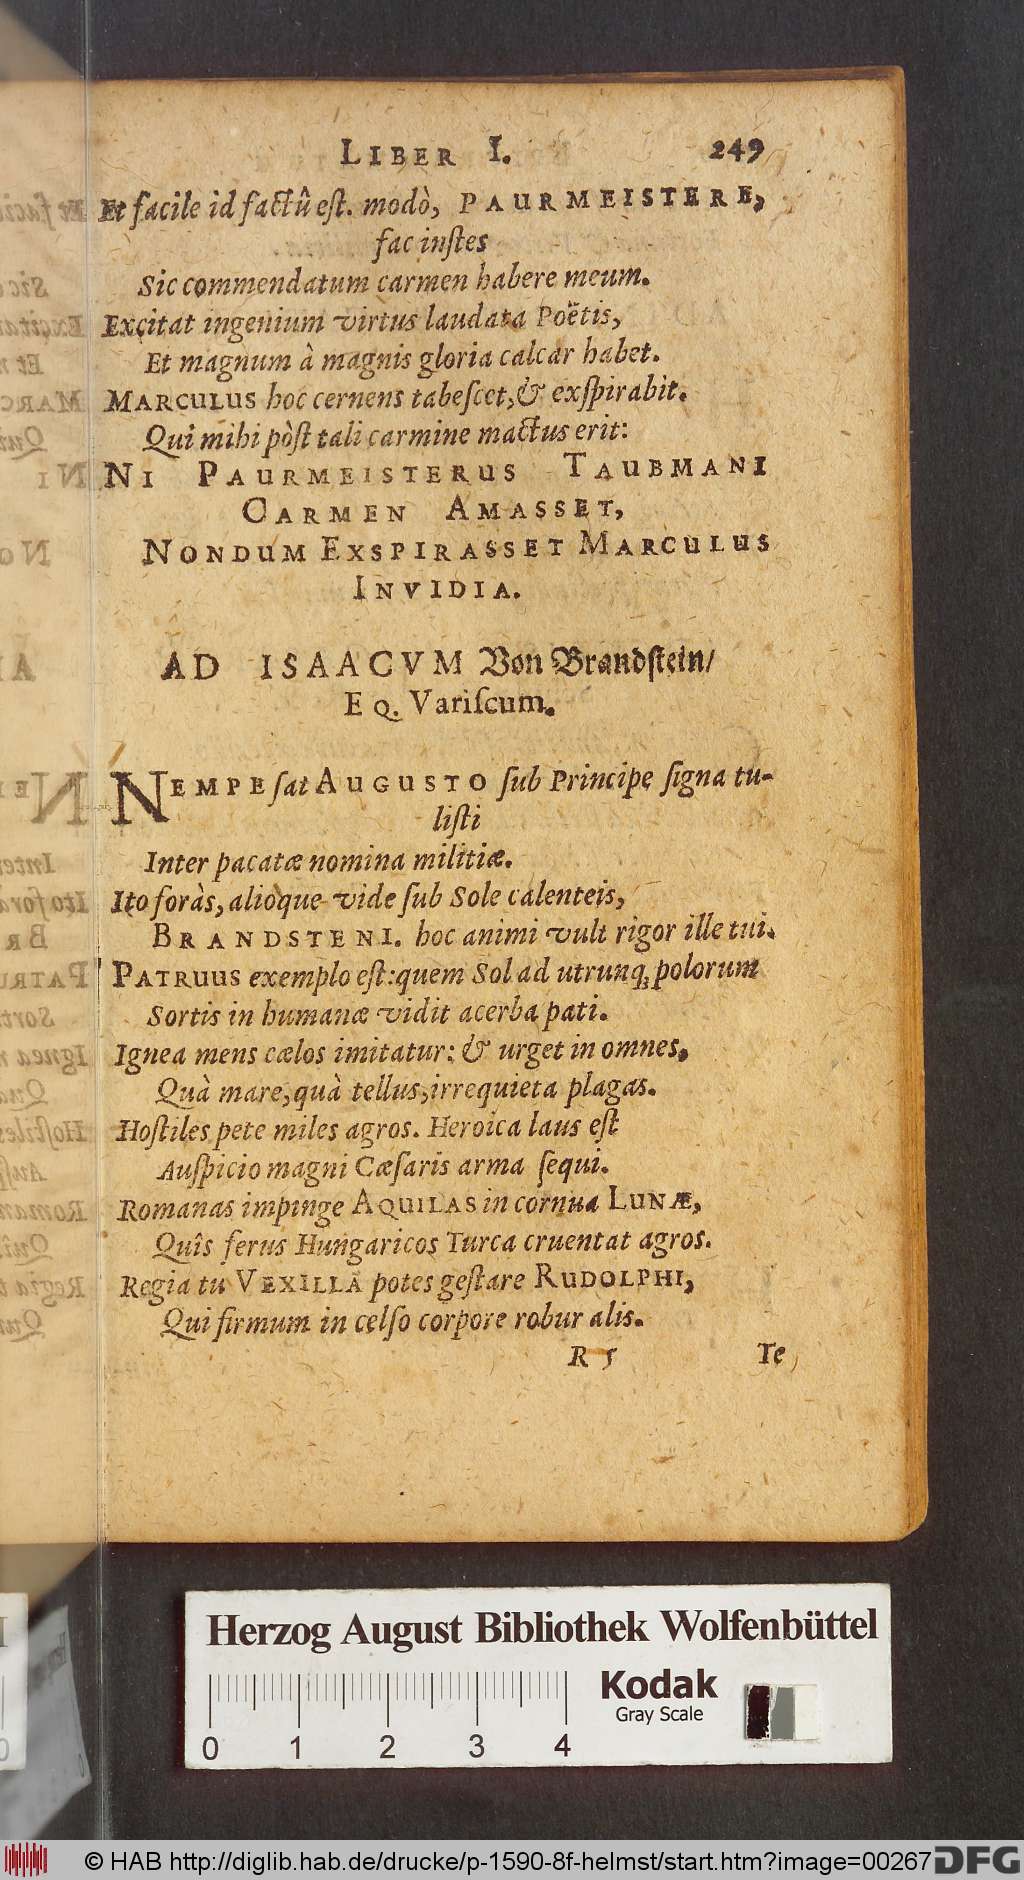 LIBER I. 249
Et facile id factû est. modò, PAURMEISTERE,
fac instes
Sic commendatum carmen habere meum.
Excitat ingenium virtus laudata Poëtis,
Et magnum à magnis gloria calcar habet.
MARCULUS hoc cernens tabescet, & exspirabit.
Qui mihi pòst tali carmine mactus erit:
NI PAURMEISTERUS TAUBMANI
CARMEN AMASSET,
NONDUM EXSPIRASSET MARCULUS
INVIDIA.
AD ISAACVM Von Brandstein/
EQ. Variscum.
NEMPE sat AUGUSTO sub Principe signa tu-
listi
Inter pacatæ nomina militiæ.
Ito foràs, alioque vide sub Sole calenteis,
BRANDSTENI. hoc animi vult rigor ille tui.
PATRUUS exemplo est: quem Sol ad utrunq; polorum
Sortis in humanæ vidit acerba pati.
Ignea mens cælos imitatur: & urget in omnes,
Quà mare, quà tellus, irrequieta plagas.
Hostiles pete miles agros. Heroica laus est
Auspicio magni Cæsaris arma sequi.
Romanas impinge AQUILAS in cornua LUNÆ,
Quîs ferus Hungaricos Turca cruentat agros.
Regia tu VEXILLA potes gestare RUDOLPHI,
Qui firmum in celso corpore robur alis.
R 5 Te
Herzog August Bibliothek Wolfenbüttel
Kodak
Gray Scale
0 1 2 3 4
© HAB http://diglib.hab.de/drucke/p-1590-8f-helmst/start.htm?image=00267
DFG